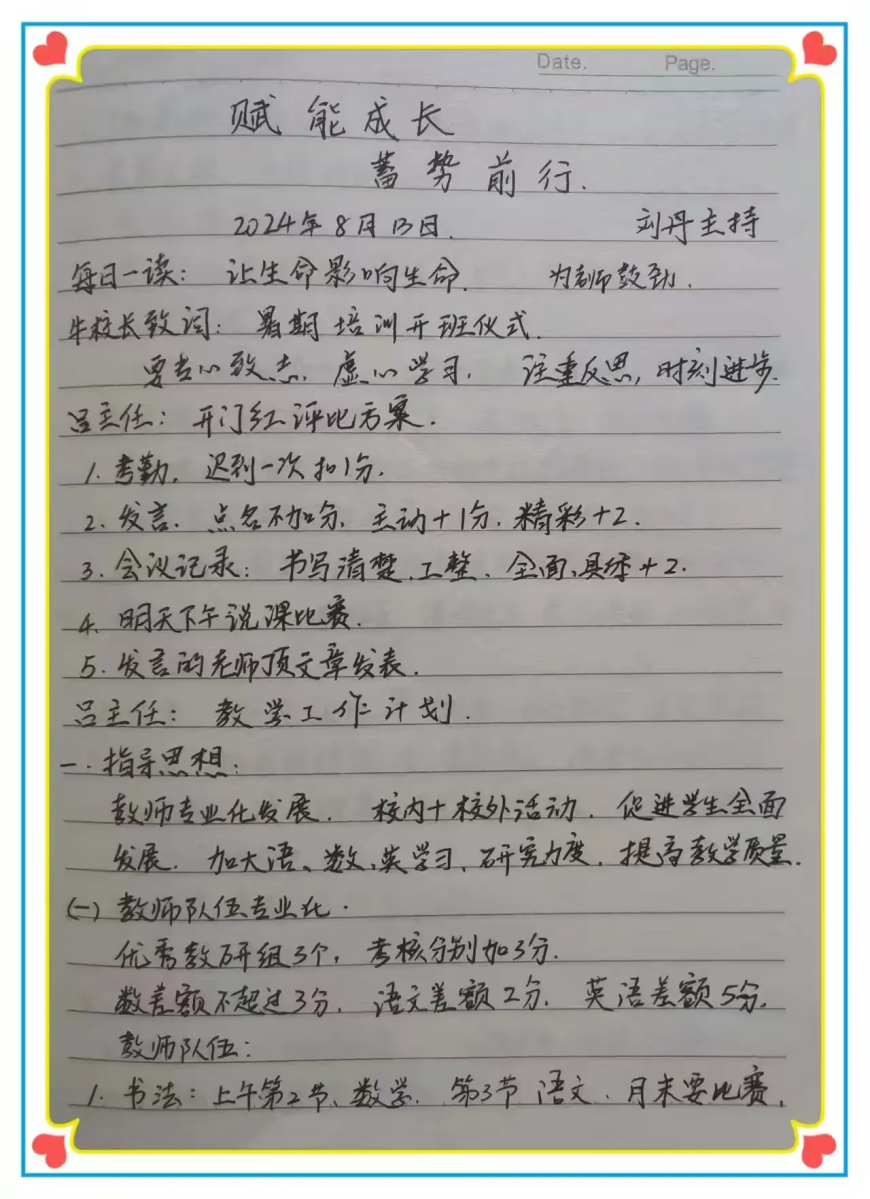 Date. Page.
赋能成长
蓄势前行.
2024年8月13日. 刘丹主持
每日一读: 让生命影响生命. 为老师鼓劲.
牛校长致词: 暑期培训开班仪式.
要专心致志, 虚心学习, 注重反思, 时刻进步.
吕主任: 开门红评比方案.
1. 考勤, 迟到一次扣1分.
2. 发言. 点名不加分, 主动+1分, 精彩+2.
3. 会议记录: 书写清楚、工整、全面、具体+2.
4. 明天下午说课比赛.
5. 发言的老师顶文章发表.
吕主任: 教学工作计划.
一. 指导思想:
教师专业化发展. 校内+校外活动. 促进学生全面
发展. 加大语、数、英学习、研究力度, 提高教学质量.
(一) 教师队伍专业化.
优秀教研组3个, 考核分别加3分.
数差额不超过3分, 语文差额2分, 英语差额5分.
教师队伍:
1. 书法: 上午第2节、数学. 第3节语文. 月末要比赛.